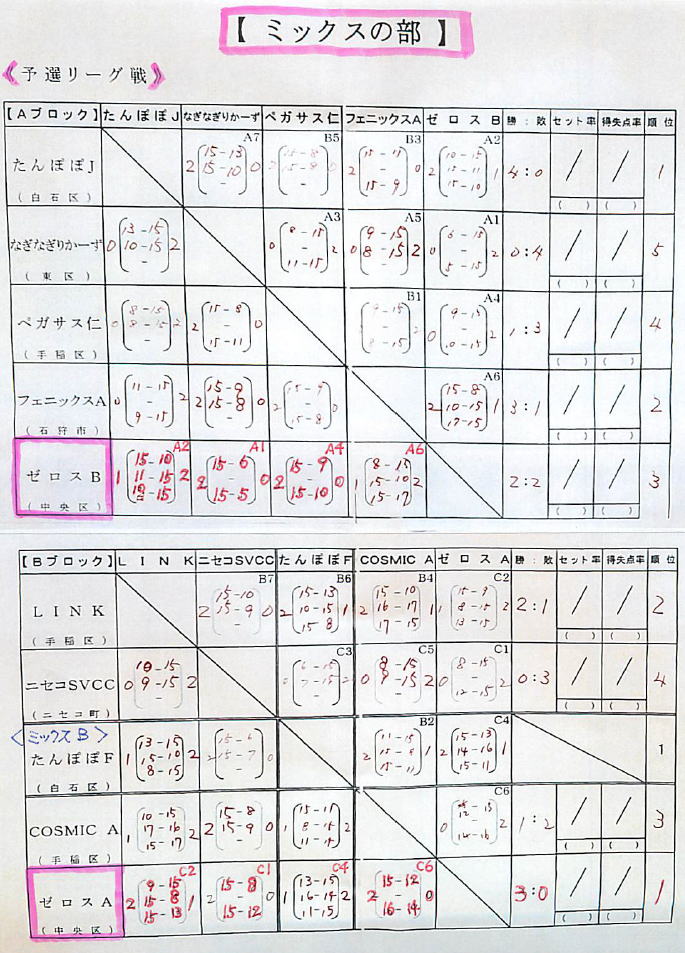 【 ミックスの部 】
《予選リーグ戦》
【Aブロック】 たんぽぽJ なぎなぎりかーず ペガサス仁 フェニックスA ゼロスB 勝:敗 セット率 得失点率 順位
A7 B5 B3 A2
たんぽぽJ
(白石区)
2 15-13 15-10 - 0
2 15-8 - 15-8 0
2 15-11 - 15-9 0
2 10-15 15-11 15-10 1
4:0 / / 1
( ) ( )
A3 A5 A1
なぎなぎりかーず
(東区)
0 13-15 10-15 - 2
0 8-15 - 11-15 2
0 9-15 8-15 2
0 6-15 - 5-15 2
0:4 / / 5
( ) ( )
B1 A4
ペガサス仁
(手稲区)
0 8-15 8-15 - 2
2 15-8 - 15-11 0
9-15 - 8-15 2
0 9-15 - 10-15 2
1:3 / / 4
( ) ( )
A6
フェニックスA
(石狩市)
0 11-15 - 9-15 2
2 15-9 15-8 - 0
2 15-9 - 15-8 0
2 15-8 10-15 17-15 1
3:1 / / 2
( ) ( )
A2 A1 A4 A6
ゼロスB
(中央区)
1 15-10 11-15 -15 2
2 15-6 - 15-5 0
2 15-9 - 15-10 0
1 8-15 15-10 15-17 2
2:2 / / 3
( ) ( )
【Bブロック】 LINK ニセコSVCC たんぽぽF COSMIC A ゼロスA 勝:敗 セット率 得失点率 順位
B7 B6 B4 C2
LINK
(手稲区)
2 15-10 15-9 - 0
2 15-13 10-15 15 8 1
2 15-10 16-17 17-15 1
1 15-9 8-15 13-15 2
2:1 / / 2
( ) ( )
C3 C5 C1
ニセコSVCC
(ニセコ町)
0 10-15 9-15 2
0 6-15 7-15 2
0 8-15 9-15 2
0 8-15 - 12-15 2
0:3 / / 4
( ) ( )
<ミックスB>
B2 C4
たんぽぽF
(白石区)
1 13-15 15-10 8-15 2
2 15-6 15-7 - 0
2 11-15 15-8 15-11 1
2 15-13 14-16 15-11 1
1
C6
COSMIC A
(手稲区)
1 10-15 17-16 15-17 2
2 15-8 15-9 0
1 15-11 8-15 11-15 2
0 12-15 - 14-16 2
1:2 / / 3
( ) ( )
C2 C1 C4 C6
ゼロスA
(中央区)
2 9-15 15-8 15-13 1
2 15-8 - 15-12 0
1 13-15 16-14 11-15 2
2 15-12 - 16-14 0
3:0 / / 1
( ) ( )